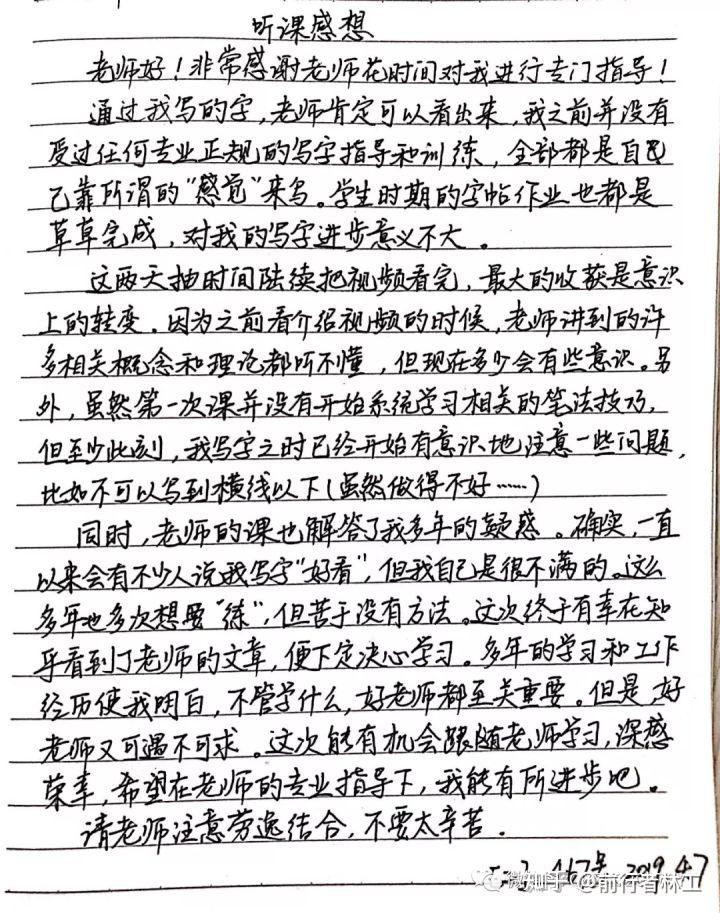 听课感想
老师好！非常感谢老师花时间对我进行专门指导！
通过我写的字，老师肯定可以看出来，我之前并没有
受过任何专业正规的写字指导和训练，全部都是自己
己靠所谓的“感觉”来写。学生时期的字帖作业也都是
草草完成，对我的写字进步意义不大。
这两天抽时间陆续把视频看完，最大的收获是意识
上的转变。因为之前看介绍视频的时候，老师讲到的许
多相关概念和理论都听不懂，但现在多少会有些意识。另
外，虽然第一次课并没有开始系统学习相关的笔法技巧，
但至少此刻，我写字之时已经开始有意识地注意一些问题，
比如不可以写到横线以下（虽然做得不好……）
同时，老师的课也解答了我多年的疑惑。确实，一直
以来会有不少人说我写字“好看”，但我自己是很不满的。这么
多年也多次想要“练”，但苦于没有方法。这次终于有幸在知
乎看到了老师的文章，便下定决心学习。多年的学习和工作
经历使我明白，不管学什么，好老师都至关重要。但是，好
老师又可遇不可求。这次能有机会跟随老师学习，深感
荣幸，希望在老师的专业指导下，我能有所进步吧。
请老师注意劳逸结合，不要太辛苦。
2019 4.7
知乎 @前行者林工